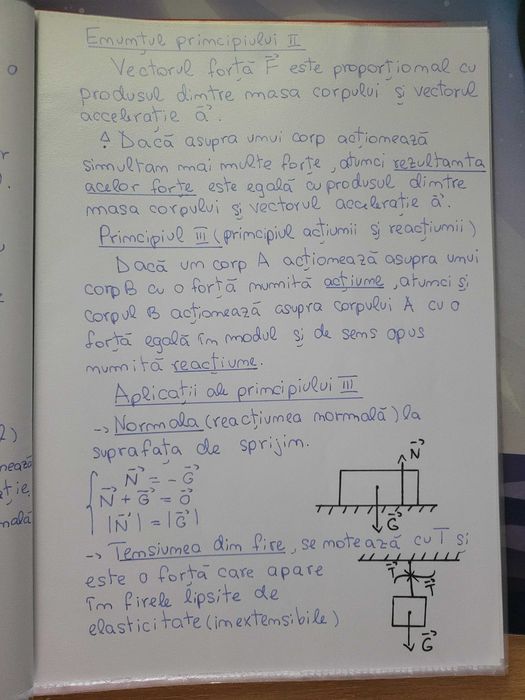 Enunțul principiului II
Vectorul forță F⃗ este proporțional cu
produsul dintre masa corpului și vectorul
accelerație a⃗.
! Dacă asupra unui corp acționează
simultan mai multe forțe, atunci rezultanta
acelor forțe este egală cu produsul dintre
masa corpului și vectorul accelerație a⃗.
Principiul III (principiul acțiunii și reacțiunii)
Dacă un corp A acționează asupra unui
corp B cu o forță numită acțiune, atunci și
corpul B acționează asupra corpului A cu o
forță egală în modul și de sens opus
numită reacțiune.
Aplicații ale principiului III
→ Normala (reacțiunea normală) la
suprafața de sprijin.
N⃗ = -G⃗
N⃗ + G⃗ = 0⃗
|N⃗| = |G⃗|
N⃗
G⃗
→ Tensiunea din fire, se notează cu T și
este o forță care apare
în firele lipsite de
elasticitate (inextensibile)
T⃗
T⃗
G⃗